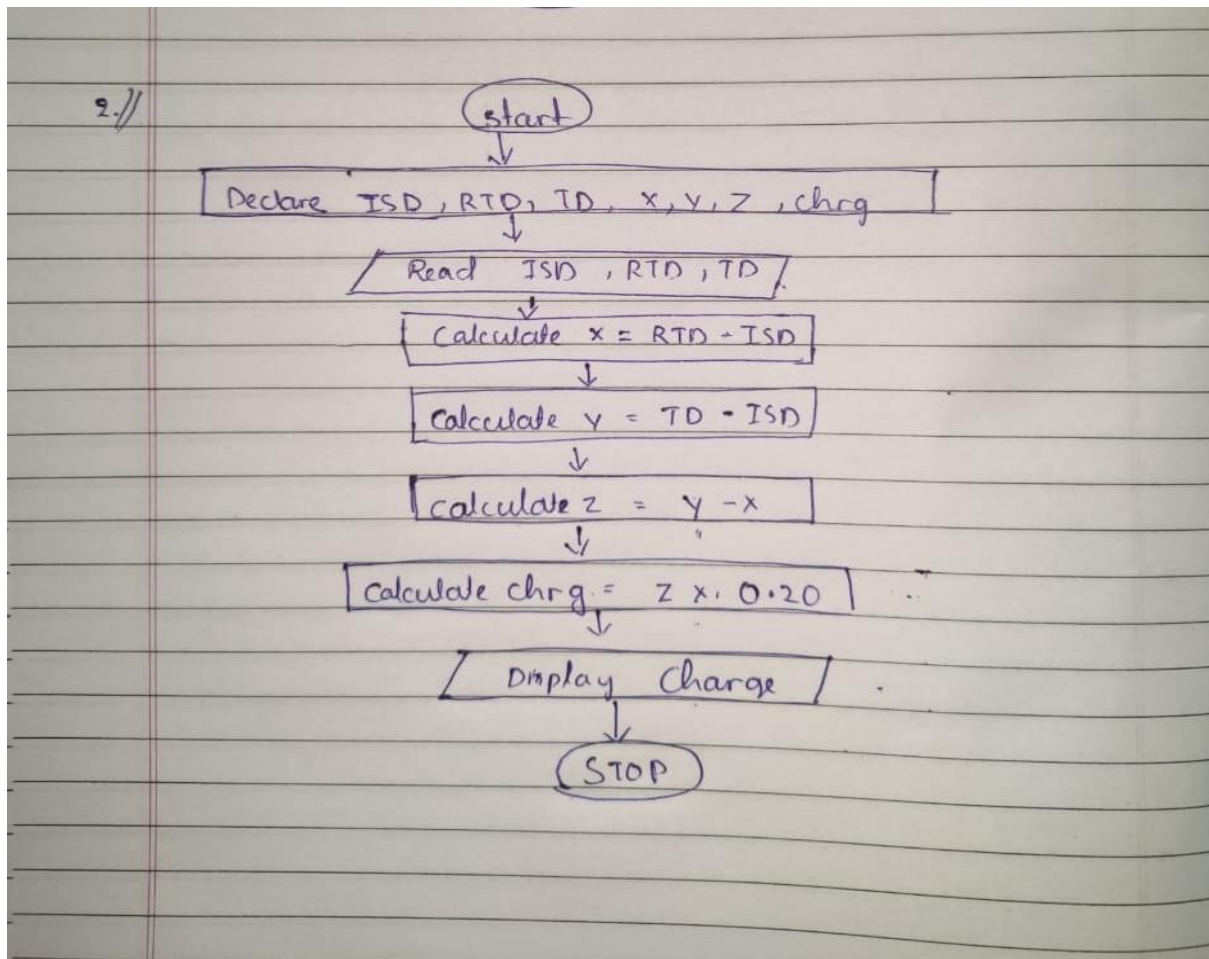 2.//
start
Declare ISD, RTD, TD, X, Y, Z, chrg
Read ISD, RTD, TD
Calculate x = RTD - ISD
Calculate y = TD - ISD
calculate z = y - x
Calculate chrg = z x 0.20
Display Charge
STOP